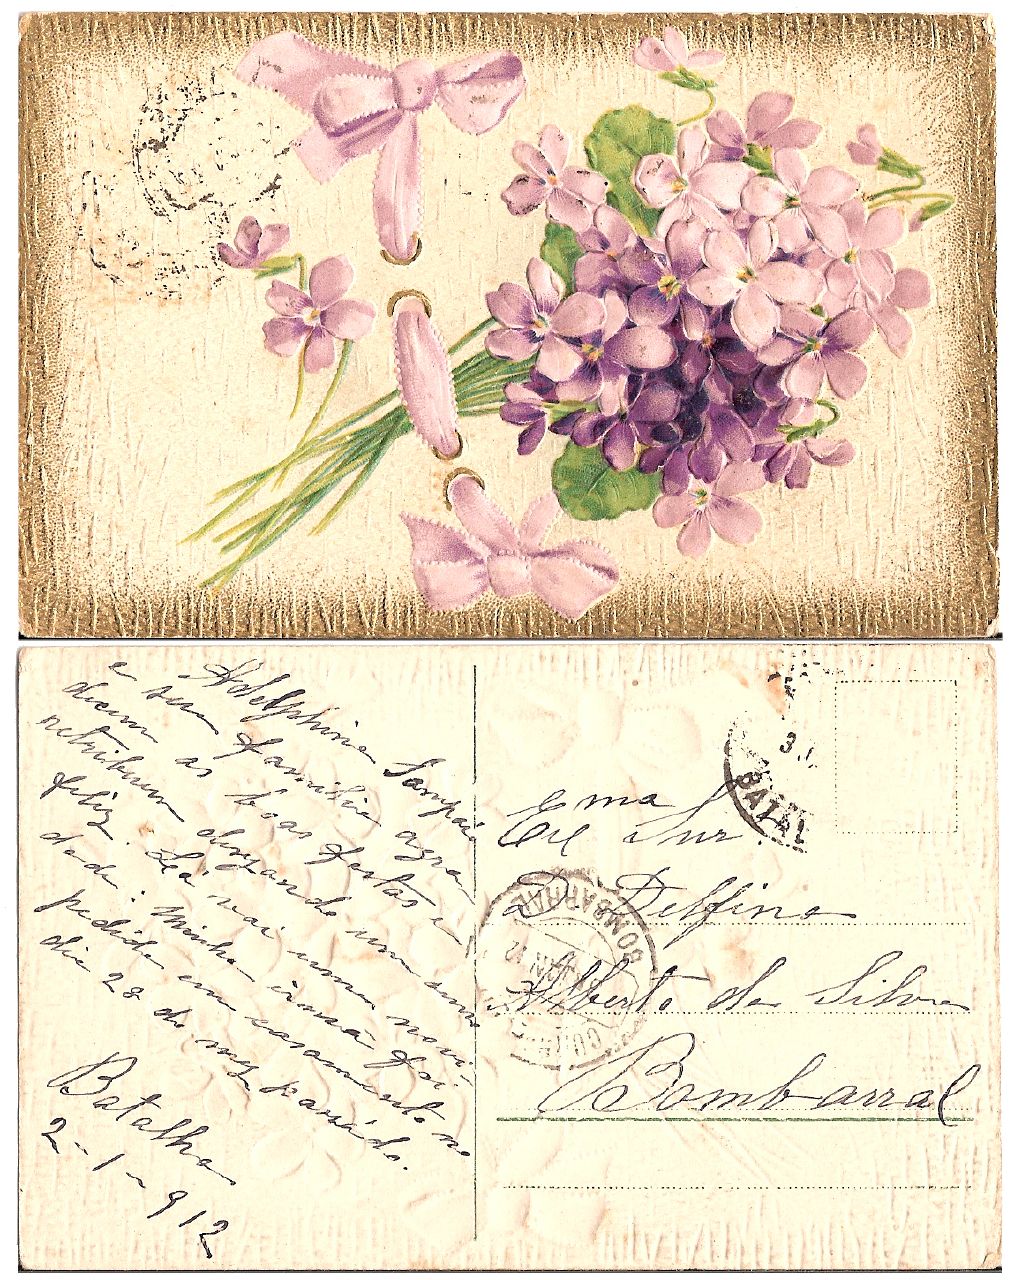 Adelphina Sampaio
e sua familia agra-
decem as boas festas e
retribuem desejando um anno
feliz. Lá vai uma novi-
dade, minha irmã foi
pedida em casamento no
dia 28 do mez passado.
Batalha
2-1-912
3.1
BATAL
Ema
Exc Snr
D. Delfina
Alberto da Silva
Bombarral
BOMBARRAL